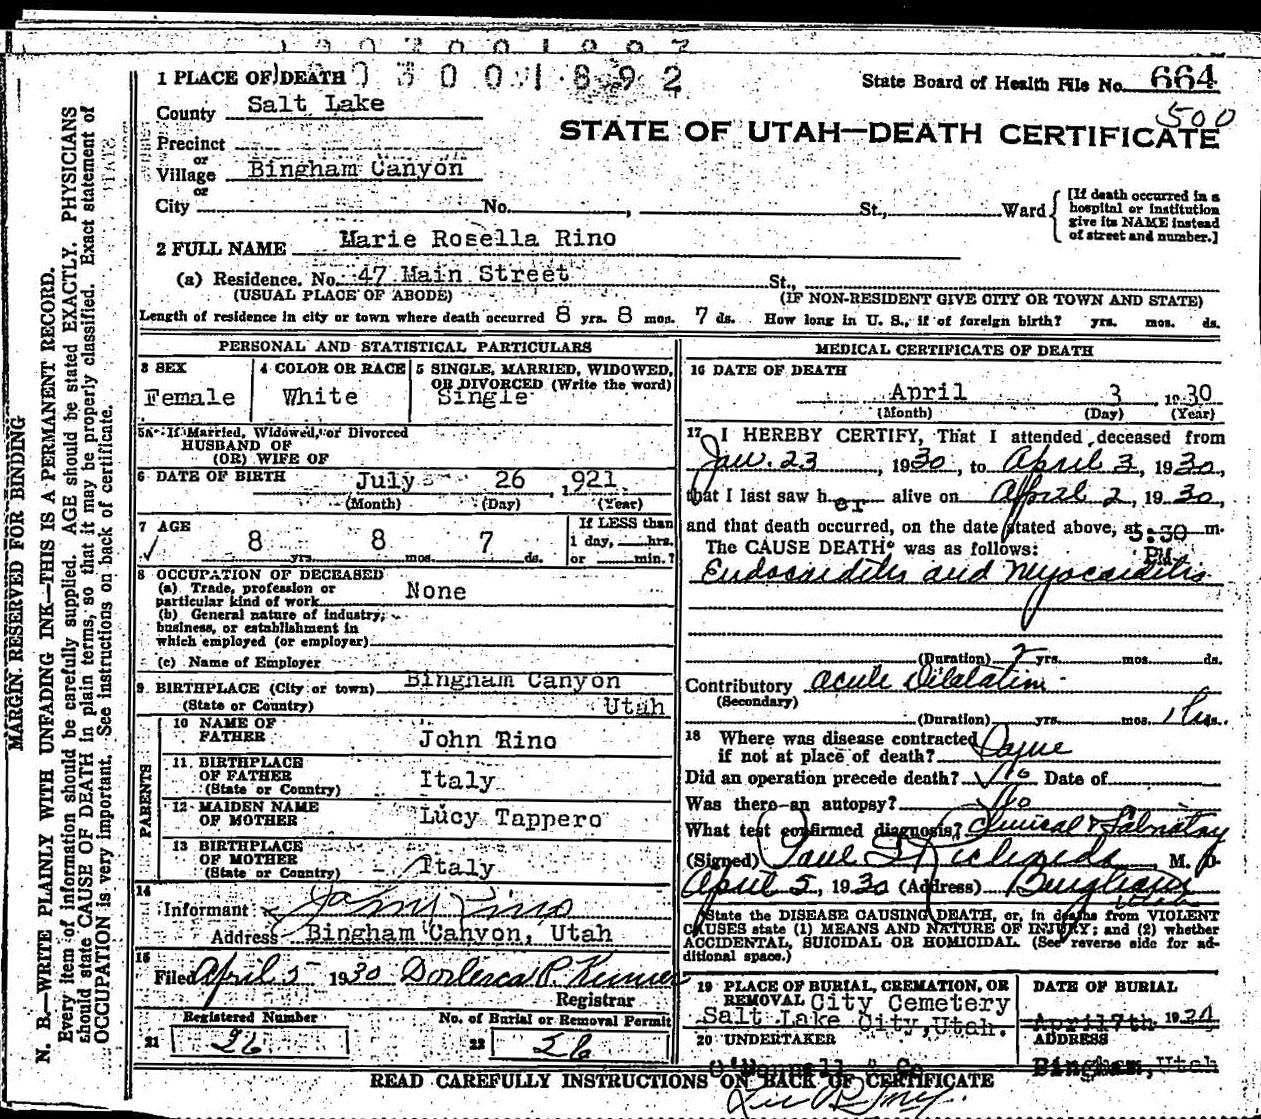 1 PLACE OF DEATH
State Board of Health File No. 664
500
County Salt Lake
STATE OF UTAH—DEATH CERTIFICATE
Precinct
or
Village Bingham Canyon
or
City No. , St., Ward
[If death occurred in a hospital or institution give its NAME instead of street and number.]
2 FULL NAME Marie Rosella Rino
(a) Residence. No. 47 Main Street St.,
(USUAL PLACE OF ABODE) (IF NON-RESIDENT GIVE CITY OR TOWN AND STATE)
Length of residence in city or town where death occurred 8 yrs. 8 mos. 7 ds. How long in U. S., if of foreign birth? yrs. mos. ds.
PERSONAL AND STATISTICAL PARTICULARS
3 SEX
Female
4 COLOR OR RACE
White
5 SINGLE, MARRIED, WIDOWED, OR DIVORCED (Write the word)
Single
5A If Married, Widowed, or Divorced
HUSBAND OF
(OR) WIFE OF
6 DATE OF BIRTH July 26 1921
(Month) (Day) (Year)
7 AGE
8 yrs. 8 mos. 7 ds.
If LESS than 1 day, hrs. or min.?
8 OCCUPATION OF DECEASED
(a) Trade, profession or particular kind of work None
(b) General nature of industry, business, or establishment in which employed (or employer)
(c) Name of Employer
9 BIRTHPLACE (City or town) Bingham Canyon
(State or Country) Utah
PARENTS
10 NAME OF FATHER John Rino
11 BIRTHPLACE OF FATHER (State or Country) Italy
12 MAIDEN NAME OF MOTHER Lucy Tappero
13 BIRTHPLACE OF MOTHER (State or Country) Italy
14
Informant John Rino
Address Bingham Canyon, Utah
15
Filed April 5 1930
Registrar
Registered Number
21 26
No. of Burial or Removal Permit
22 26
MEDICAL CERTIFICATE OF DEATH
16 DATE OF DEATH
April 3 1930
(Month) (Day) (Year)
17 I HEREBY CERTIFY, That I attended deceased from
Jan. 23, 1930, to April 3, 1930,
that I last saw her alive on April 2, 1930,
and that death occurred, on the date stated above, at 5:30 m.
PM
The CAUSE DEATH* was as follows:
Endocarditis and Myocarditis
(Duration) 2 yrs. mos. ds.
Contributory Acute Dilatation
(Secondary)
(Duration) yrs. mos. ds.
18 Where was disease contracted
if not at place of death?
Did an operation precede death? No Date of
Was there an autopsy? No
What test confirmed diagnosis? Clinical & Labratory
(Signed) Paul S Richards M. D.
April 5, 1930 (Address) Bingham
Utah
State the DISEASE CAUSING DEATH, or, in deaths from VIOLENT CAUSES state (1) MEANS AND NATURE OF INJURY; and (2) whether ACCIDENTAL, SUICIDAL OR HOMICIDAL. (See reverse side for additional space.)
19 PLACE OF BURIAL, CREMATION, OR REMOVAL City Cemetery
Salt Lake City, Utah.
DATE OF BURIAL
April 7th 1934
20 UNDERTAKER
O'Donnell & Co
ADDRESS
Bingham, Utah
READ CAREFULLY INSTRUCTIONS ON BACK OF CERTIFICATE
MARGIN RESERVED FOR BINDING
N. B.—WRITE PLAINLY WITH UNFADING INK—THIS IS A PERMANENT RECORD.
Every item of information should be carefully supplied. AGE should be stated EXACTLY. PHYSICIANS
should state CAUSE OF DEATH in plain terms, so that it may be properly classified. Exact statement of
OCCUPATION is very important. See instructions on back of certificate.